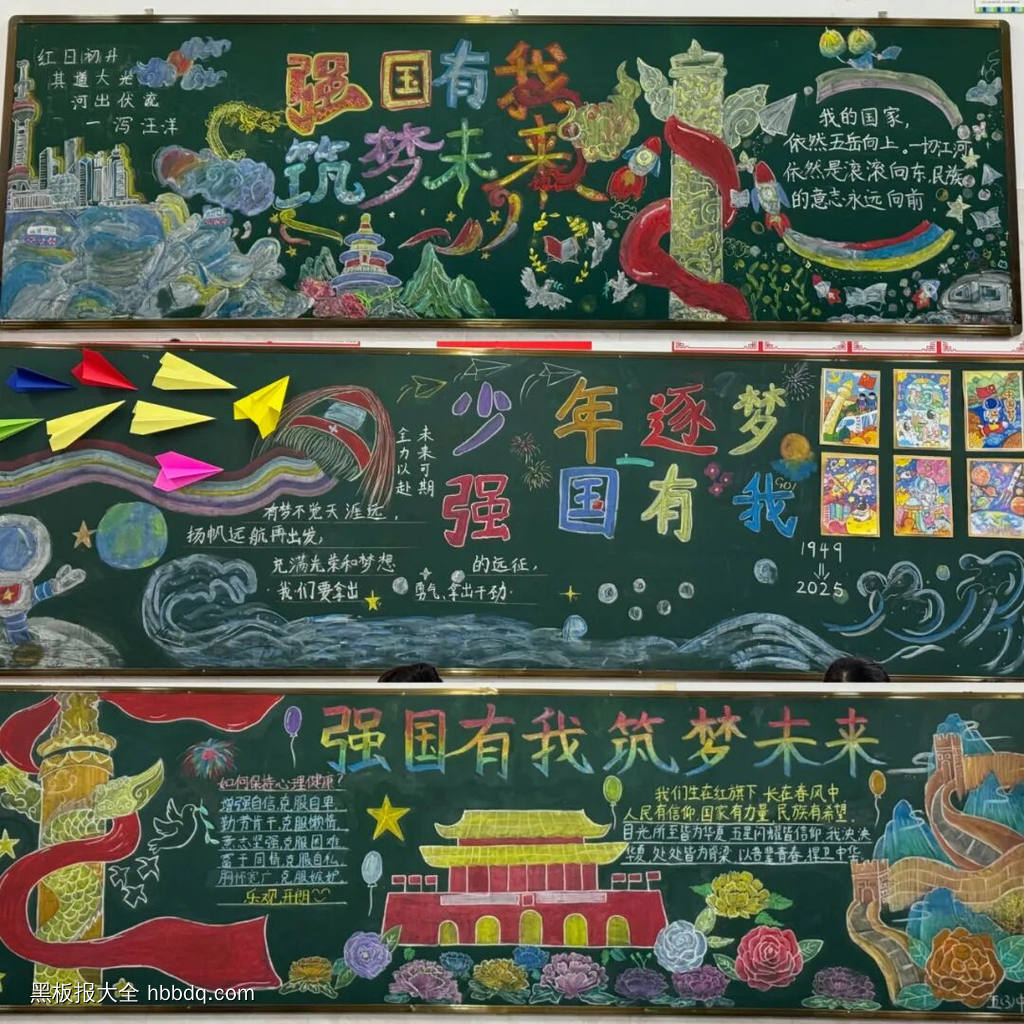 红日初升
其道大光
河出伏流
一泻汪洋
强国有我
筑梦未来
我的国家，
依然五岳向上。一切江河
依然是滚滚向东.民族
的意志永远向前
少年逐梦
强国有我
未来可期
全力以赴
有梦不觉天涯远，
扬帆远航再出发，
充满光荣和梦想 的远征，
我们要拿出 勇气、拿出干劲.
GO!
1949
2025
强国有我筑梦未来
如何保持心理健康?
增强自信克服自卑
勤劳肯干克服懒惰
意志坚强克服困难
富于同情克服自私
胸怀宽广克服嫉妒
乐观开朗
我们生在红旗下 长在春风中
人民有信仰 国家有力量 民族有希望
目光所至皆为华夏 五星闪耀皆信仰 我泱泱
华夏 处处皆为脊梁 以吾辈青春 捍卫中华
五(3)中
黑板报大全 hbbdq.com